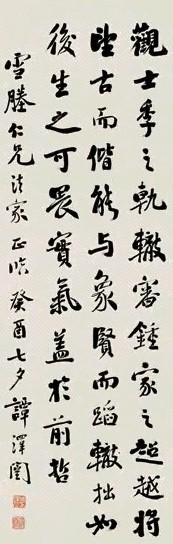 觀士季之軌轍審鍾家之超越將
望古而偕能与象賢而蹈轍拙如
後生之可畏實氣蓋於前哲
雪塍仁兄法家正临 癸酉七夕譚澤闓